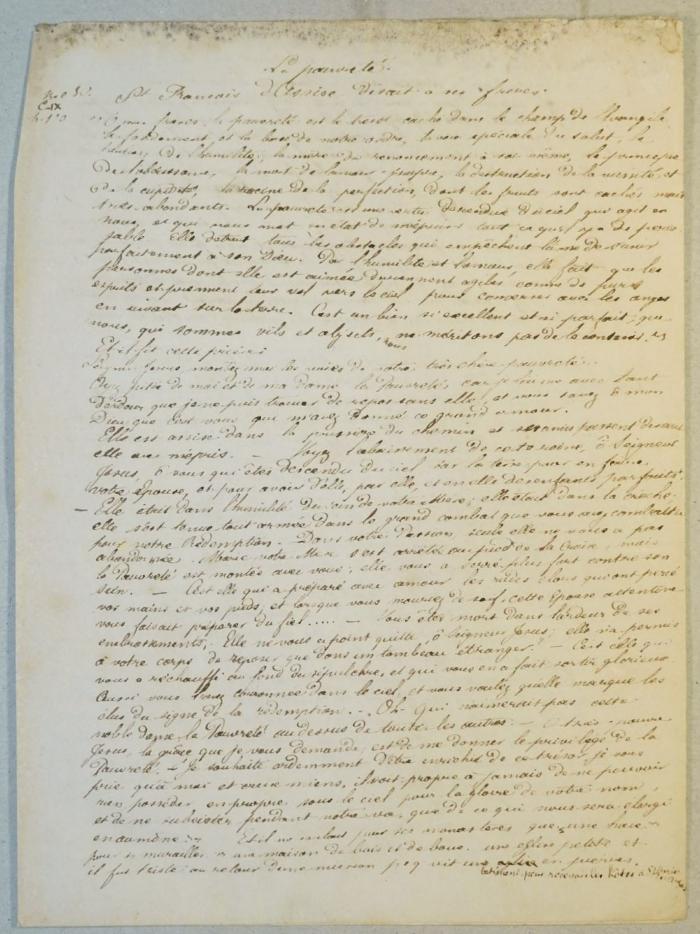 La pauvreté.
St Francois d'Assise disait à ses frères.
C. IX
"O mes frères, la pauvreté est le trésor caché dans le champ de l'Evangile
le fondement et la base de notre ordre, la voie spéciale du salut, le
de l'humilité, la mère du renoncement à soi-même, le principe
de l'obéissance, la mort de l'amour-propre, la destruction de la vanité et
de la cupidité, la racine de la perfection, dont les fruits sont cachés mais
très-abondants. La pauvreté est une vertu descendue du ciel qui agit en
nous, et qui nous met en état de mépriser tout ce qui n'est pas
Elle détruit tous les obstacles qui empêchent l'âme de s'unir
parfaitement à son Dieu. Par l'humilité et l'amour, elle fait que les
personnes dont elle est aimée deviennent agiles comme de purs
esprits et prennent leur vol vers le ciel pour converser avec les anges
en vivant sur la terre. C'est un bien si excellent et si parfait, que
nous, qui sommes vils et abjects, ne méritons pas de le contenir."
Et il fit cette prière:
Seigneur Jésus, montrez-moi les voies de votre très chère pauvreté.
Ayez pitié de moi et de ma dame la Pauvreté car je l'aime avec tant
d'ardeur que je ne puis trouver de repos sans elle, et vous savez ô mon
Dieu que c'est vous qui m'avez donné ce grand amour.
Elle est assise dans la poussière du chemin et ses amis passent devant
elle avec mépris. — Voyez l'abaissement de cette reine, ô Seigneur
Jésus, ô vous qui êtes descendu du ciel sur la terre pour en faire
votre épouse, et pour avoir d'elle, par elle, et en elle des enfants parfaits.
— Elle était dans l'humilité du sein de votre Mère; elle était dans la crèche,
elle s'est tenue tout armée dans le grand combat que vous avez combattu
pour notre Rédemption. — Dans votre Passion, seule elle ne vous a pas
abandonné. Marie votre Mère s'est arrêtée au pied de la Croix, mais
la Pauvreté est montée avec vous, elle vous a serré plus fort contre son
sein. — C'est elle qui a préparé avec amour les rudes clous qui ont percé
vos mains et vos pieds, et lorsque vous mouriez de soif, cette épouse attentive
vous faisait préparer du fiel..... — Vous êtes mort dans l'ardeur de ses
embrassements, Elle ne vous a point quitté, ô Seigneur Jésus, elle n'a permis
à votre corps de reposer que dans un tombeau étranger. — C'est elle qui
vous a réchauffé au fond du sépulchre, et qui vous en a fait sortir glorieux
Aussi vous l'avez couronnée dans le ciel, et vous voulez qu'elle marque les
élus du signe de la rédemption. — Oh! Qui n'aimerait pas cette
noble dame la Pauvreté au dessus de toutes les autres. — O très-pauvre
Jésus, la grâce que je vous demande, est de me donner le privilège de la
Pauvreté. — Je souhaite ardemment d'être enrichi de ce trésor, je vous
prie qu'à moi et aux miens, il soit propre à jamais de ne pouvoir
rien posséder en propre sous le ciel pour la gloire de votre nom,
et de ne subsister pendant notre vie, que de ce qui nous sera élargi
en aumône." Et il ne voulait pour ses monastères que une haie
pour murailles, une maison de bois et de boue, une église petite et
il fut triste au retour d'une mission parcequ'il vit une église en pierres.